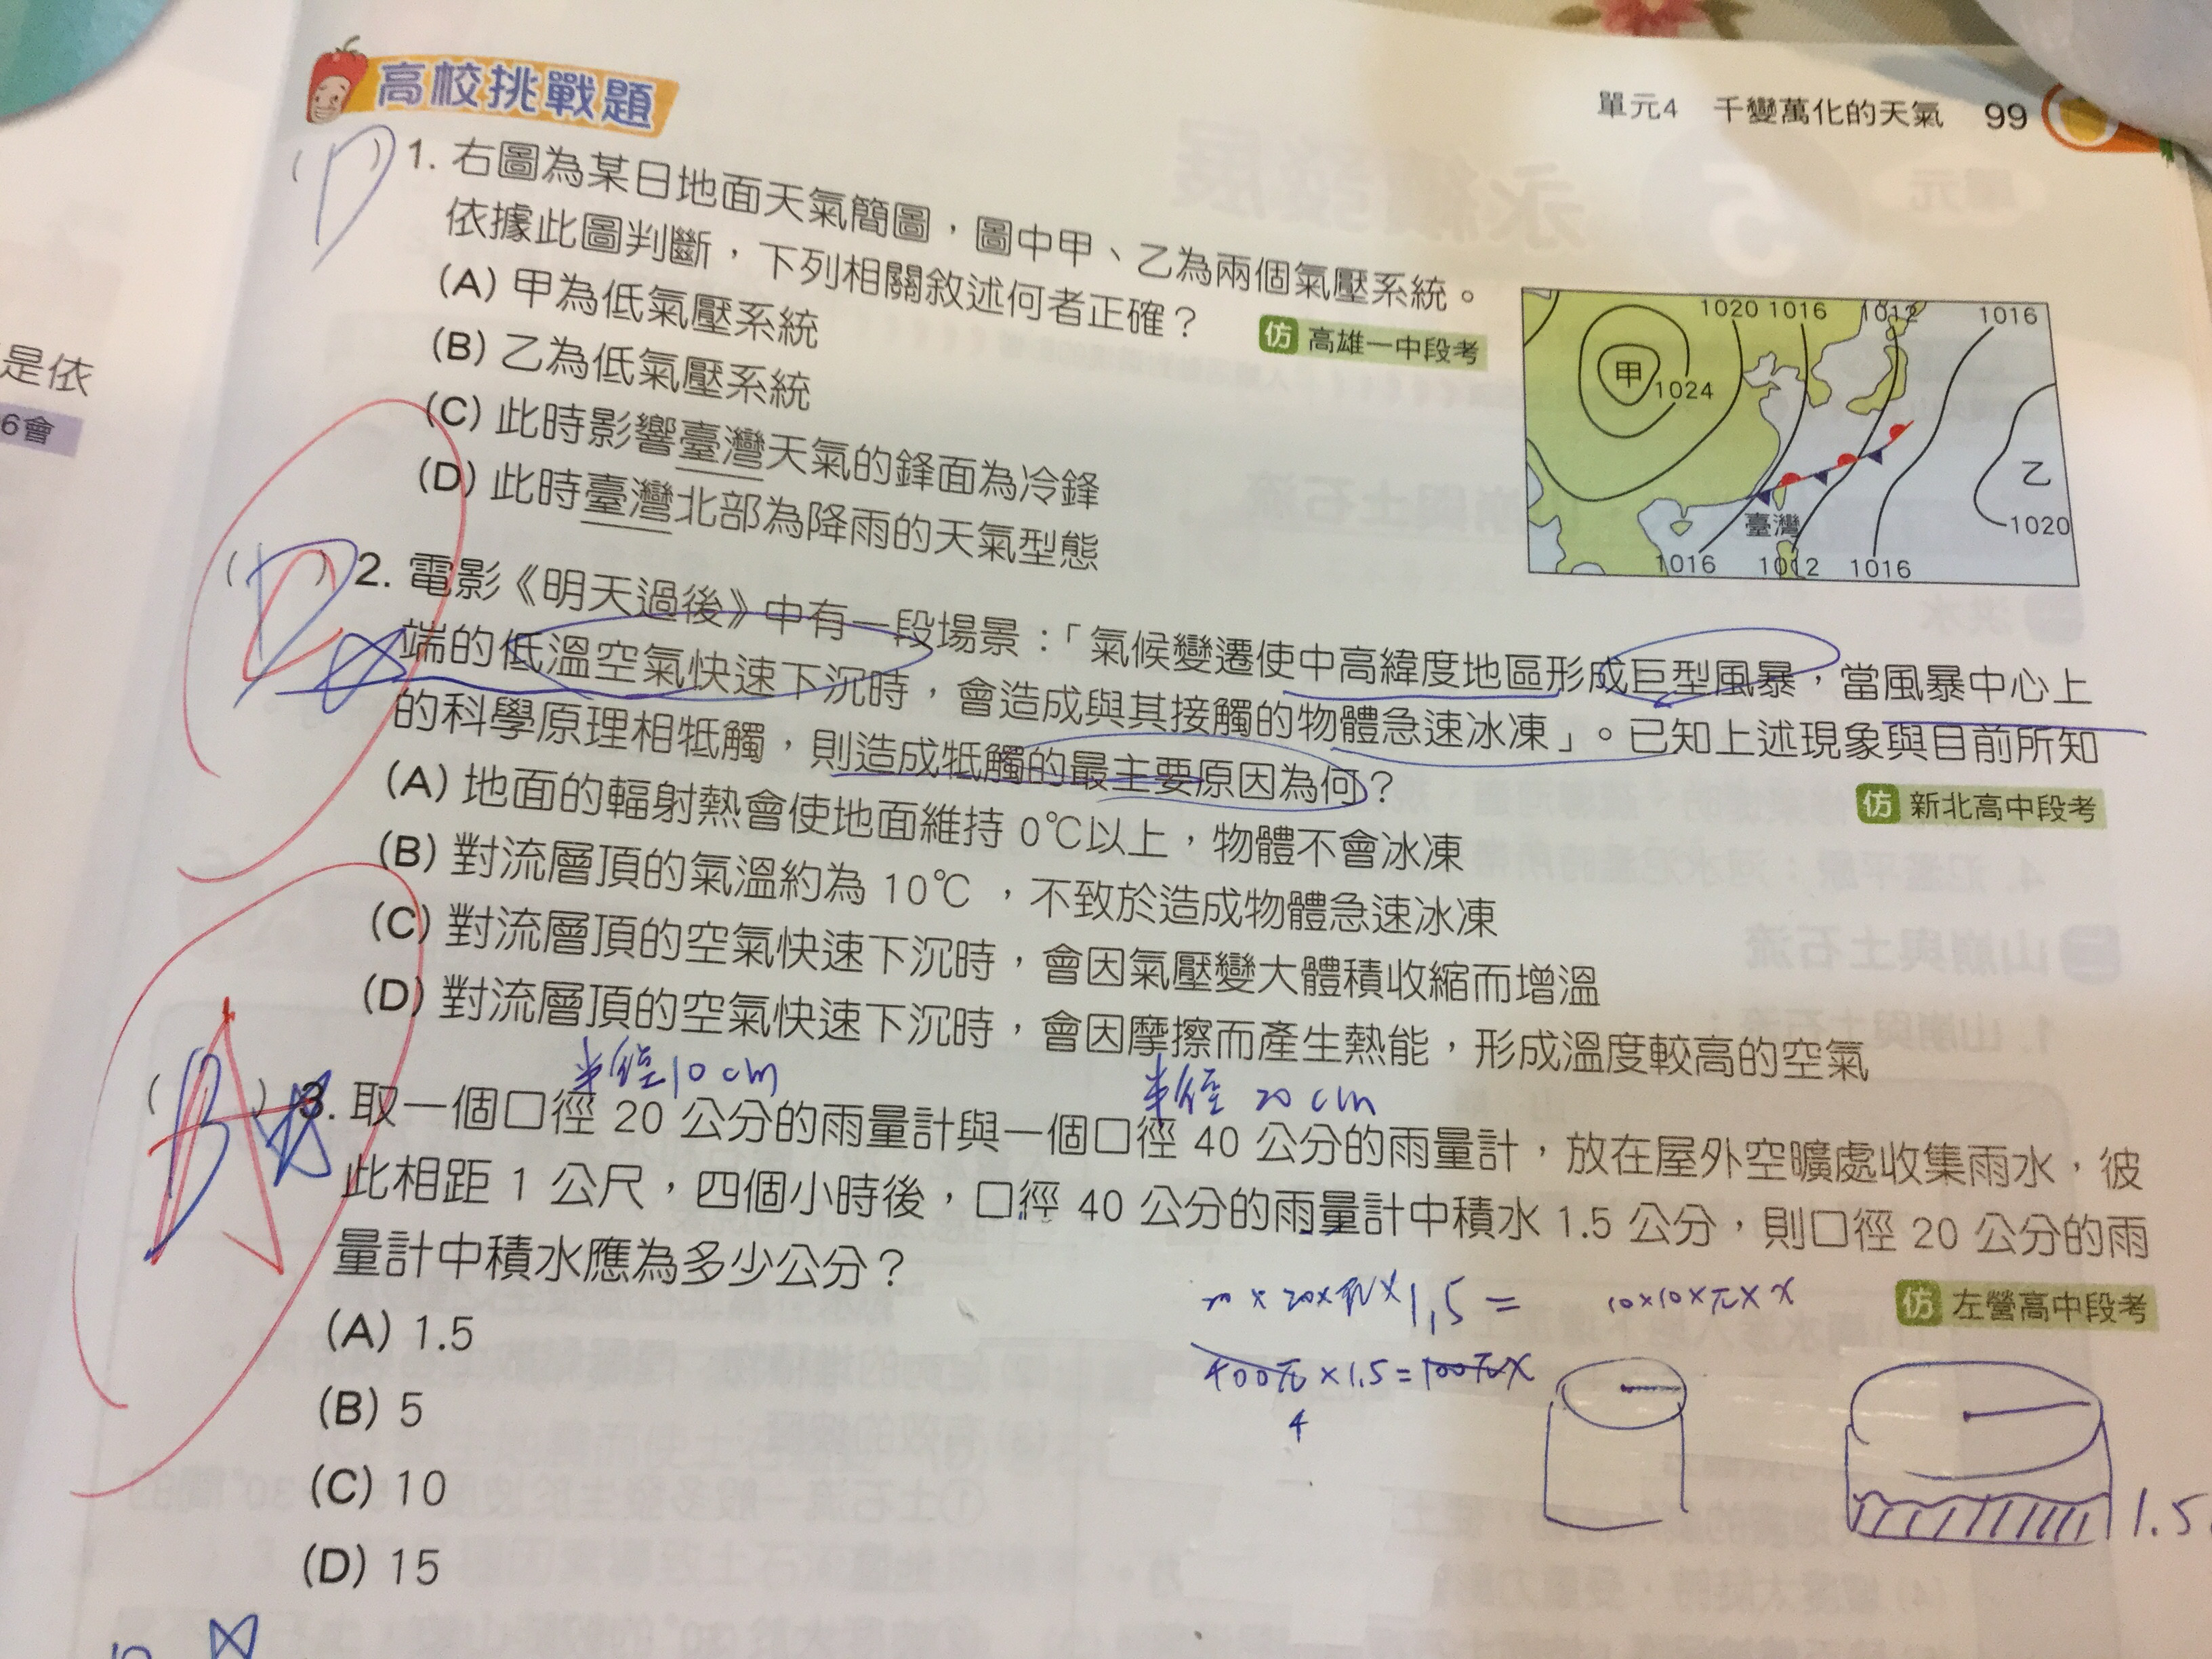 單元4 千變萬化的天氣 99
高校挑戰題
(D) 1. 右圖為某日地面天氣簡圖，圖中甲、乙為兩個氣壓系統。
依據此圖判斷，下列相關敘述何者正確？
仿 高雄一中段考
(A) 甲為低氣壓系統
(B) 乙為低氣壓系統
(C) 此時影響臺灣天氣的鋒面為冷鋒
(D) 此時臺灣北部為降雨的天氣型態
1020 1016 1012 1016
甲 1024
乙
臺灣 1020
1016 1012 1016
是依
6會
(D) 2. 電影《明天過後》中有一段場景：「氣候變遷使中高緯度地區形成巨型風暴，當風暴中心上
端的低溫空氣快速下沉時，會造成與其接觸的物體急速冰凍」。已知上述現象與目前所知
的科學原理相牴觸，則造成牴觸的最主要原因為何？
仿 新北高中段考
(A) 地面的輻射熱會使地面維持 0℃以上，物體不會冰凍
(B) 對流層頂的氣溫約為 10℃，不致於造成物體急速冰凍
(C) 對流層頂的空氣快速下沉時，會因氣壓變大體積收縮而增溫
(D) 對流層頂的空氣快速下沉時，會因摩擦而產生熱能，形成溫度較高的空氣
半徑10cm 半徑 20cm
(B) A 3. 取一個口徑 20 公分的雨量計與一個口徑 40 公分的雨量計，放在屋外空曠處收集雨水，彼
此相距 1 公尺，四個小時後，口徑 40 公分的雨量計中積水 1.5 公分，則口徑 20 公分的雨
量計中積水應為多少公分？
仿 左營高中段考
(A) 1.5
(B) 5
(C) 10
(D) 15
×20×π×1.5= 10×10×π×x
400π×1.5=100πx
4
1.5